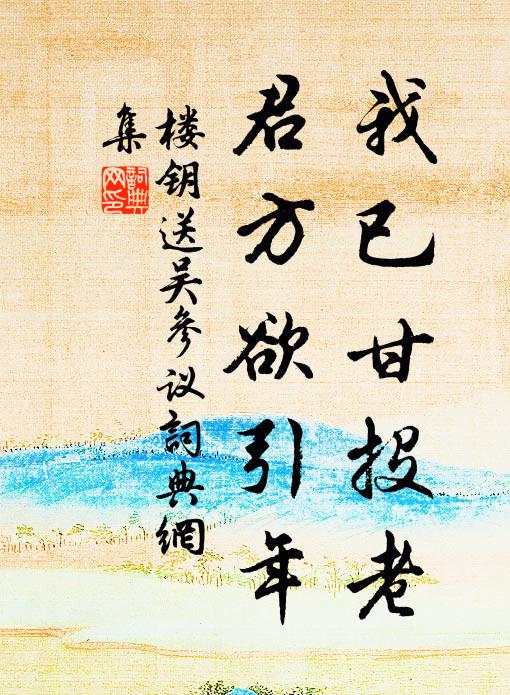 我已甘投老
君方欲引年
楼钥送吴参议詞典網
集
詞典
网印